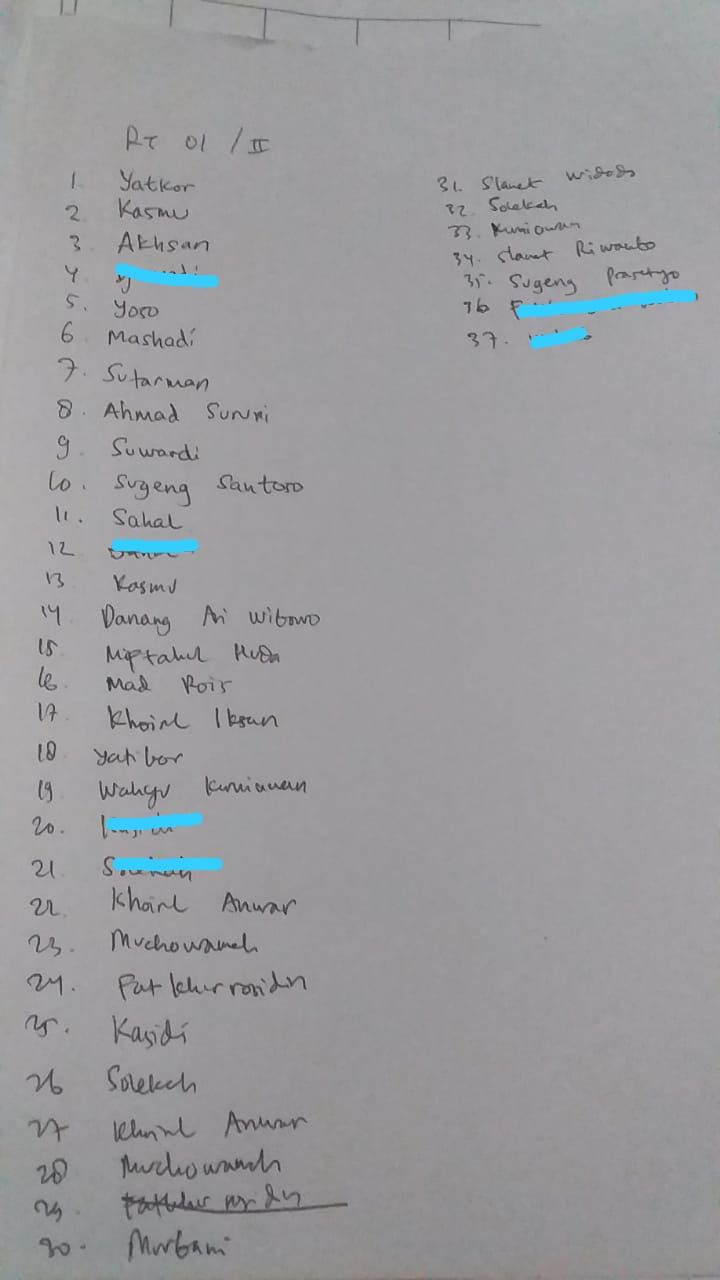 RT 01 / II
1 Yatkor
2 Kasmu
3 Akhsan
4
5. Yoso
6 Mashadi
7. Sutarman
8. Ahmad Sururi
9 Suwardi
10. Sugeng Santoso
11. Sahal
12
13 Kasmu
14 Danang Ari Wibowo
15 Miptahul Huda
16. Mad Rois
17 Khoirul Iksan
18 Yatibor
19 Wahyu Kurniawan
20.
21
22. Khoirul Anwar
23. Muchowanah
24. Fatkhurrosidin
25. Kasidi
26 Solekah
27 Khoirul Anwar
28 Muchowanah
29
30. Murbani
31. Slamet Widodo
32. Solekah
33. Kurniawan
34. Slamet Riwanto
35. Sugeng Prasetyo
36
37.